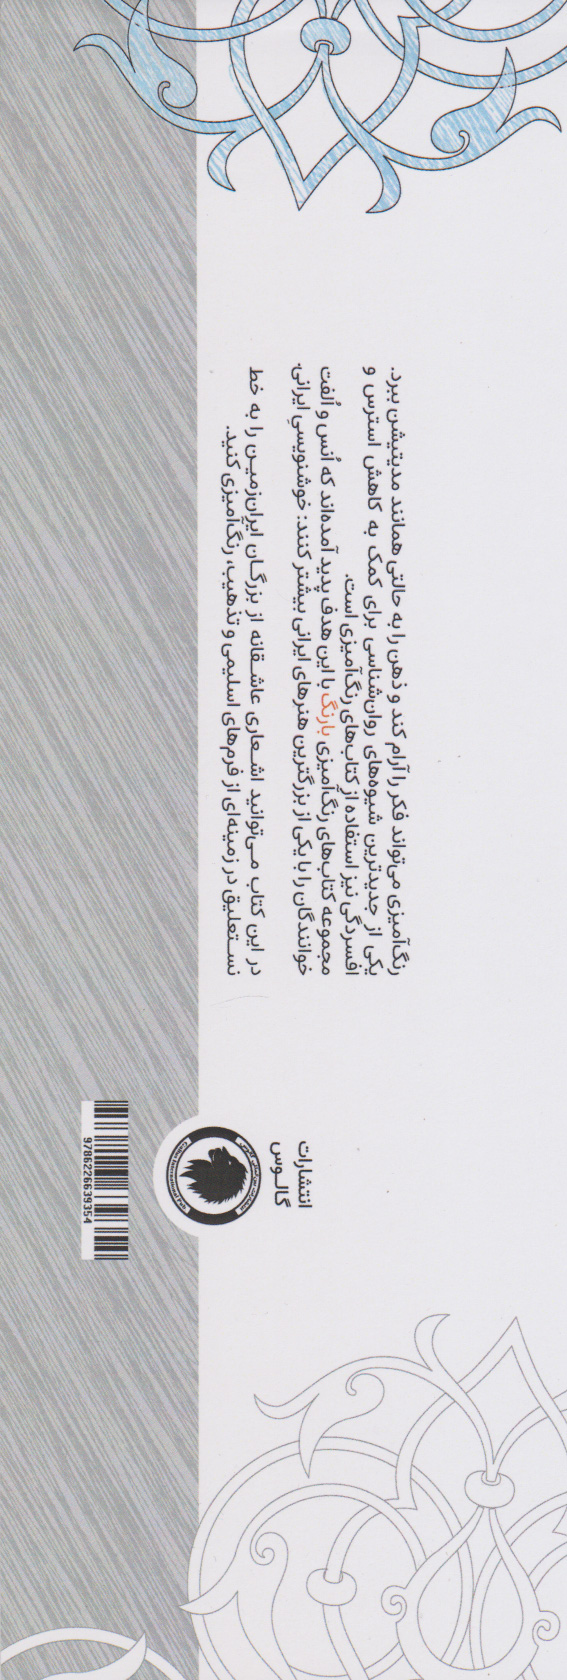 رنگ‌آمیزی می‌تواند فکر را آرام کند و ذهن را به حالتی همانند مدیتیشن ببرد.
یکی از جدیدترین شیوه‌های روان‌شناسی برای کمک به کاهش استرس و
افسردگی نیز استفاده از کتاب‌های رنگ‌آمیزی است.
مجموعه کتاب‌های رنگ‌آمیزی بارنگ با این هدف پدید آمده‌اند که اُنس و اُلفت
خوانندگان را با یکی از بزرگترین هنرهای ایرانی بیشتر کنند: خوشنویسیِ ایرانی.
در این کتاب می‌توانید اشعاری عاشقانه از بزرگان ایران‌زمین را به خط
نستعلیق در زمینه‌ای از فرم‌های اسلیمی و تذهیب، رنگ‌آمیزی کنید.
انتشارات
گالوس
9786226639354